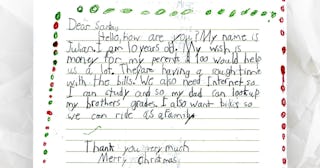 Dear Santa,
Hello, how are you? My name is
Julian. I am 10 years old. My wish is
money for my parents $100 would help
us a lot. They are having a rough time
with the bills. We also need Internet so
I can study and so my dad can look up
my brothers' grades. I also want bikes so
we can ride as a family.
Thank you very much
Merry Christmas